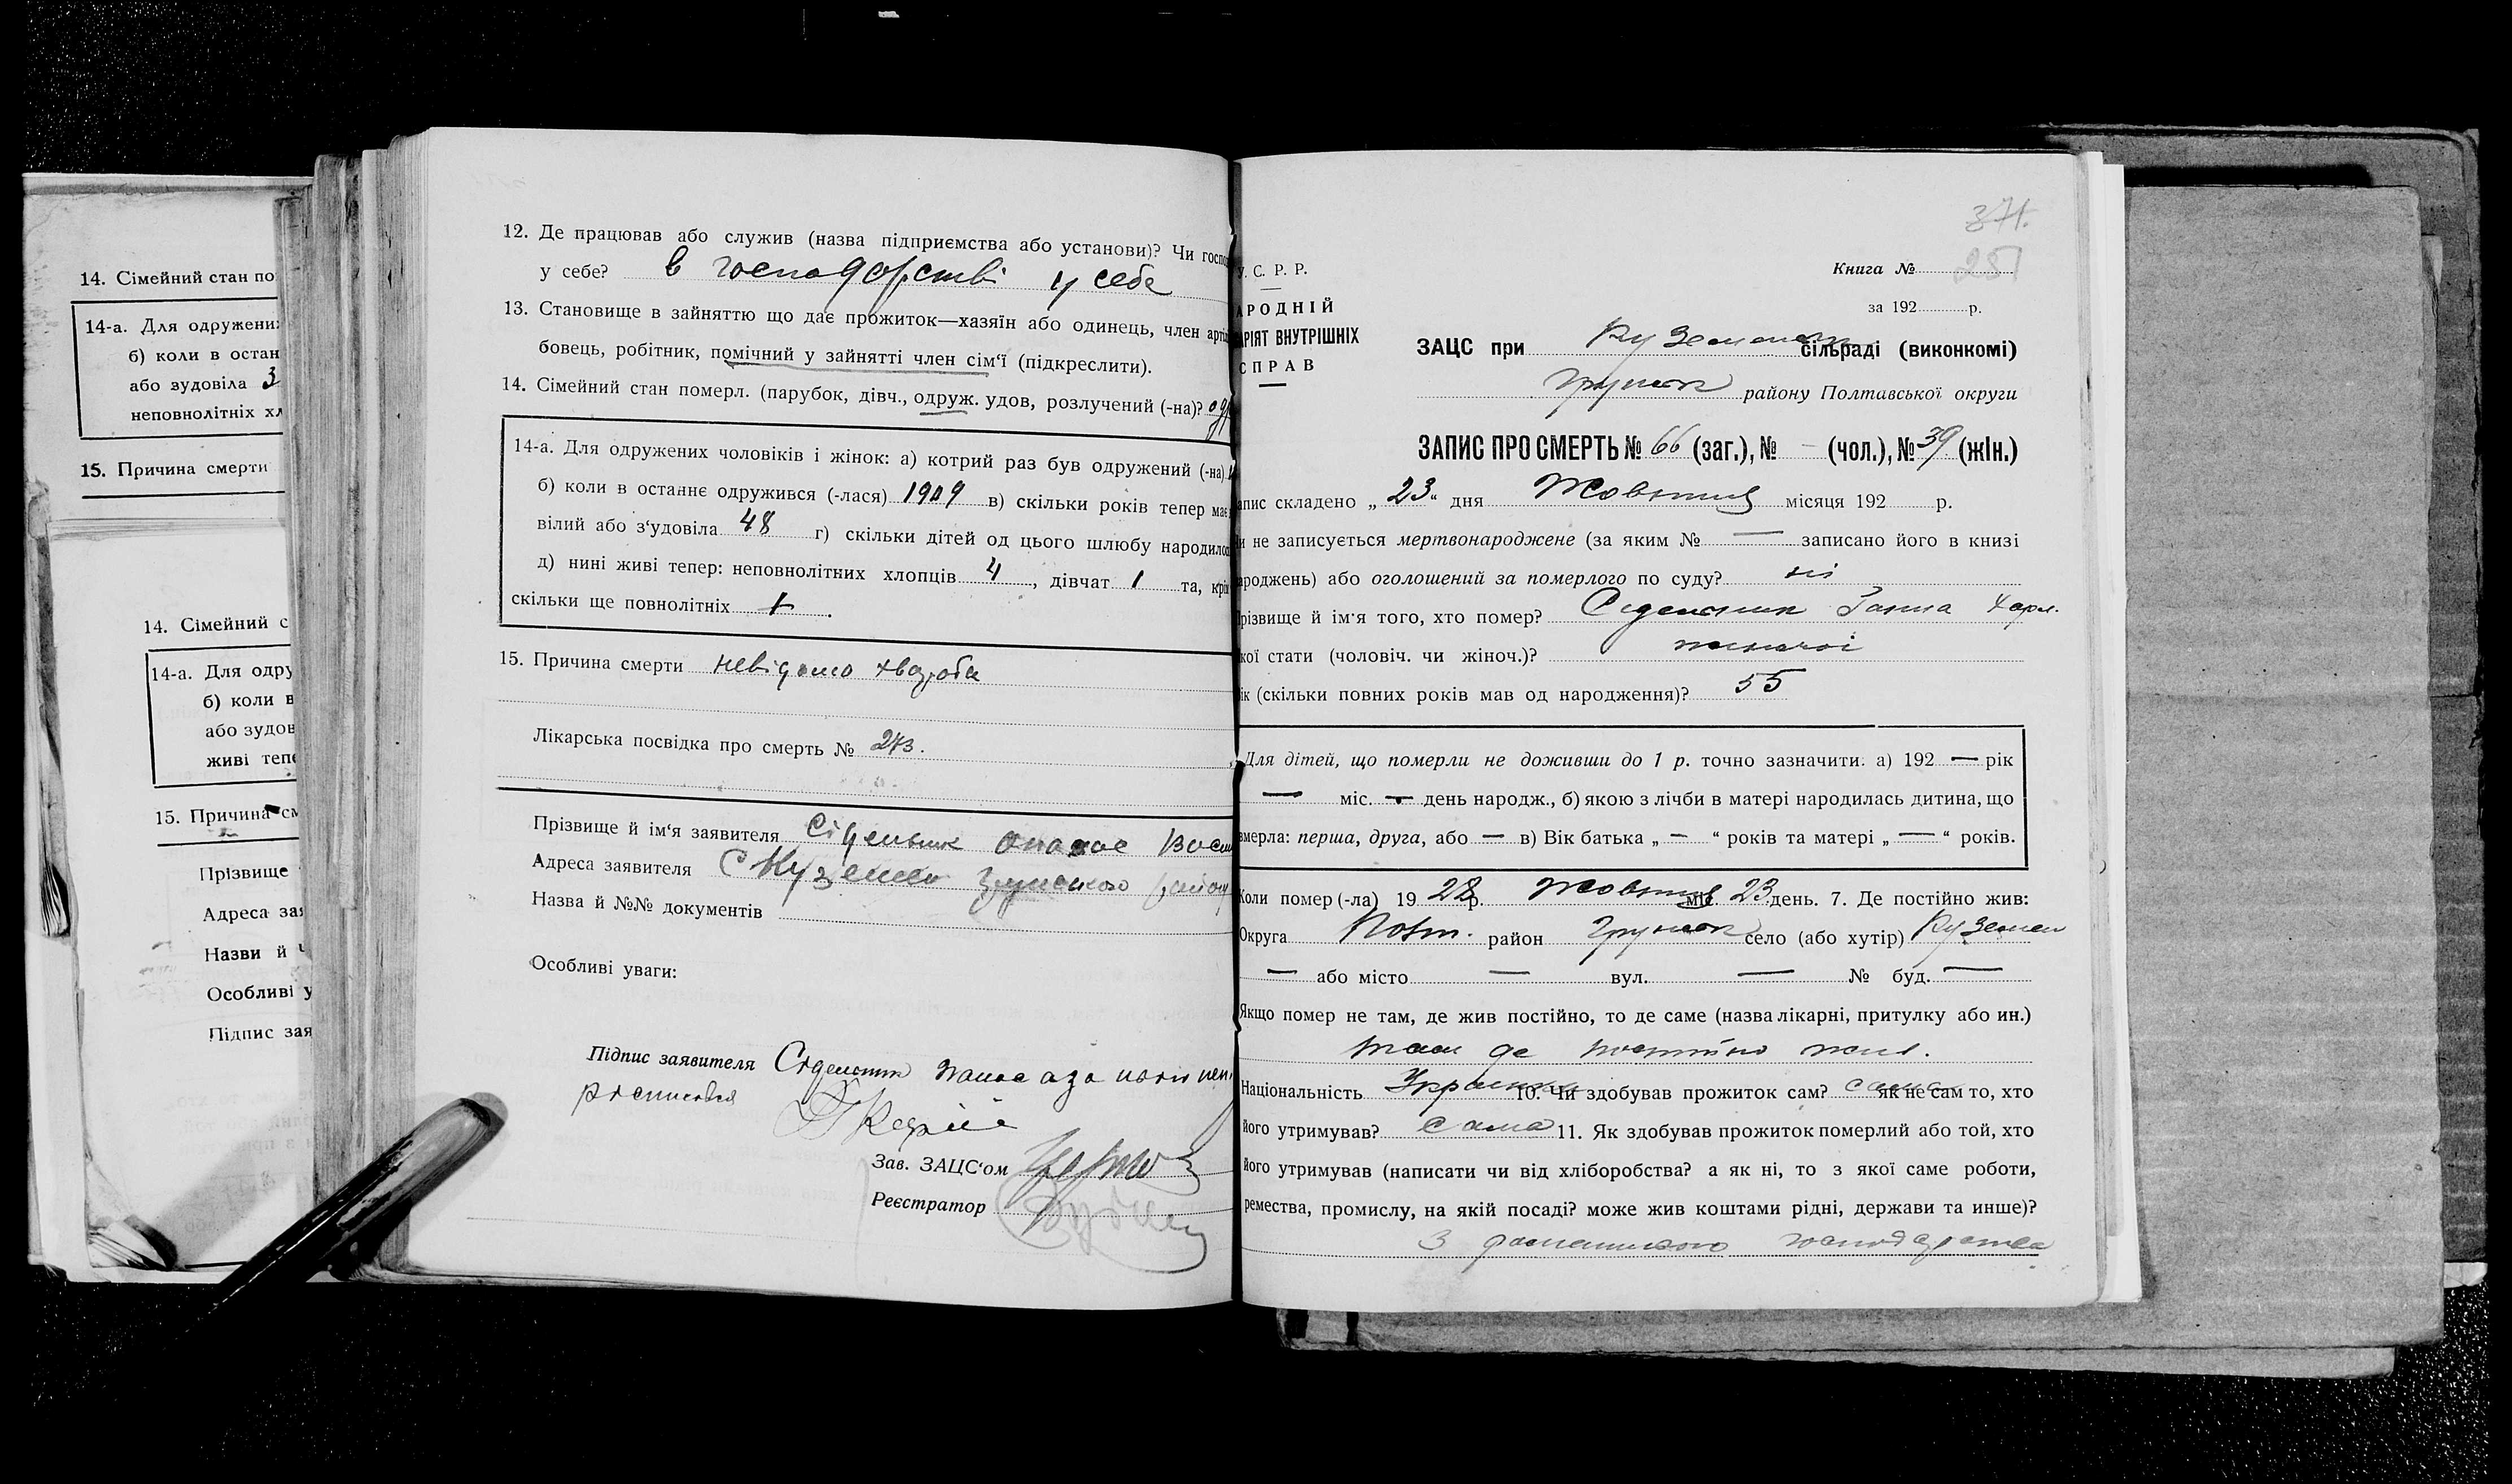 14. Сімейний стан по
14-а. Для одружени
б) коли в остан
або зудовіла 3
неповнолітніх хл
15. Причина смерти
14. Сімейний с
14-а. Для одру
б) коли в
або зудов
живі тепе
15. Причина см
Прізвище
Адреса зая
Назви й ч
Особливі у
Підпис зая
12. Де працював або служив (назва підприємства або установи)? Чи госпо
у себе? в господорстві у себе
13. Становище в зайняттю що дає прожиток—хазяїн або одинець, член арті
бовець, робітник, помічний у зайнятті член сім'ї (підкреслити).
14. Сімейний стан померл. (парубок, дівч., одруж. удов, розлучений (-на)? од
14-а. Для одружених чоловіків і жінок: а) котрий раз був одружений (-на)
б) коли в останнє одружився (-лася) 1909 в) скільки років тепер має
вілий або з'удовіла 48 г) скільки дітей од цього шлюбу народилос
д) нині живі тепер: неповнолітних хлопців 4, дівчат 1 та, крім
скільки ще повнолітніх
15. Причина смерти невідомо хвороба
Лікарська посвідка про смерть №
Прізвище й ім'я заявителя Сідельник Опанас Васи
Адреса заявителя С Куземен району
Назва й №№ документів
Особливі уваги:
Підпис заявителя Сідельник
росписався
Зав. ЗАЦС'ом
Реєстратор
371.
251
У. С. Р. Р.
АРОДНІЙ
АРІЯТ ВНУТРІШНІХ
СПРАВ
Книга №
за 192 р.
ЗАЦС при Куземенск сільраді (виконкомі)
Грунск району Полтавської округи
ЗАПИС ПРО СМЕРТЬ № 66 (заг.), № — (чол.), № 39 (жін.)
апис складено „ 23 “ дня Жовтня місяця 192 р.
и не записується мертвонароджене (за яким № — записано його в книзі
ароджень) або оголошений за померлого по суду? ні
різвище й ім'я того, хто помер? Сідельник Ганна Харл.
кої стати (чоловіч. чи жіноч.)? жіночої
ік (скільки повних років мав од народження)? 55
Для дітей, що померли не доживши до 1 р. точно зазначити: а) 192 — рік
— міс. — день народж., б) якою з лічби в матері народилась дитина, що
вмерла: перша, друга, або — в) Вік батька „ — “ років та матері „ — “ років.
Коли помер (-ла) 19 28 р. Жовтня міс. 23 день. 7. Де постійно жив:
Округа Полт. район Грунск село (або хутір) Куземен
— або місто — вул. — № буд. —
Якщо помер не там, де жив постійно, то де саме (назва лікарні, притулку або ин.)
там де постійно жила.
Національність Українка 10. Чи здобував прожиток сам? сама як не сам то, хто
його утримував? Сама 11. Як здобував прожиток померлий або той, хто
його утримував (написати чи від хліборобства? а як ні, то з якої саме роботи,
ремества, промислу, на якій посаді? може жив коштами рідні, держави та инше)?
З господарства